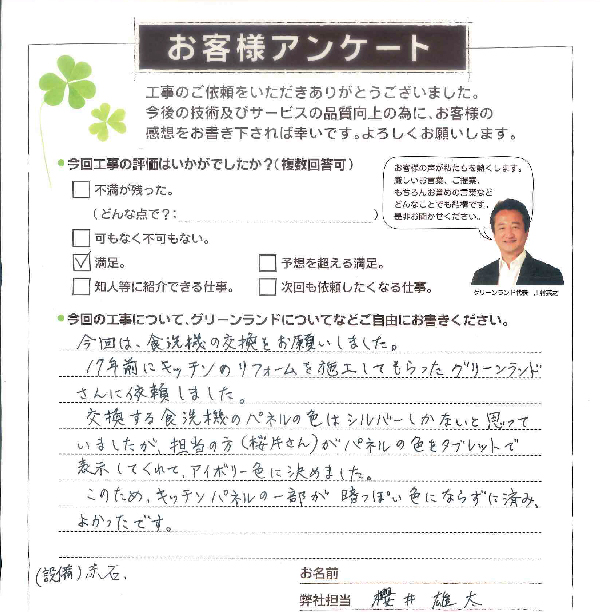 お客様アンケート
工事のご依頼をいただきありがとうございました。
今後の技術及びサービスの品質向上の為に、お客様の
感想をお書き下されば幸いです。よろしくお願いします。
●今回工事の評価はいかがでしたか?(複数回答可)
不満が残った。
(どんな点で?: )
可もなく不可もない。
満足。
予想を超える満足。
知人等に紹介できる仕事。
次回も依頼したくなる仕事。
お客様の声が私たちを動くします。
厳しいお言葉、ご提案、
もちろんお褒めの言葉など
どんなことでも結構です。
是非お聞かせください。
グリーンランド代表
●今回の工事について、グリーンランドについてなどご自由にお書きください。
今回は、食洗機の交換をお願いしました。
17年前にキッチンのリフォームを施工してもらったグリーンランド
さんに依頼しました。
交換する食洗機のパネルの色はシルバーしかないと思って
いましたが、担当の方(桜井さん)がパネルの色をタブレットで
表示してくれて、アイボリー色に決めました。
このため、キッチンパネルの一部が暗っぽい色にならずに済み、
よかったです。
(設備)赤石.
お名前
弊社担当 櫻井 雄太